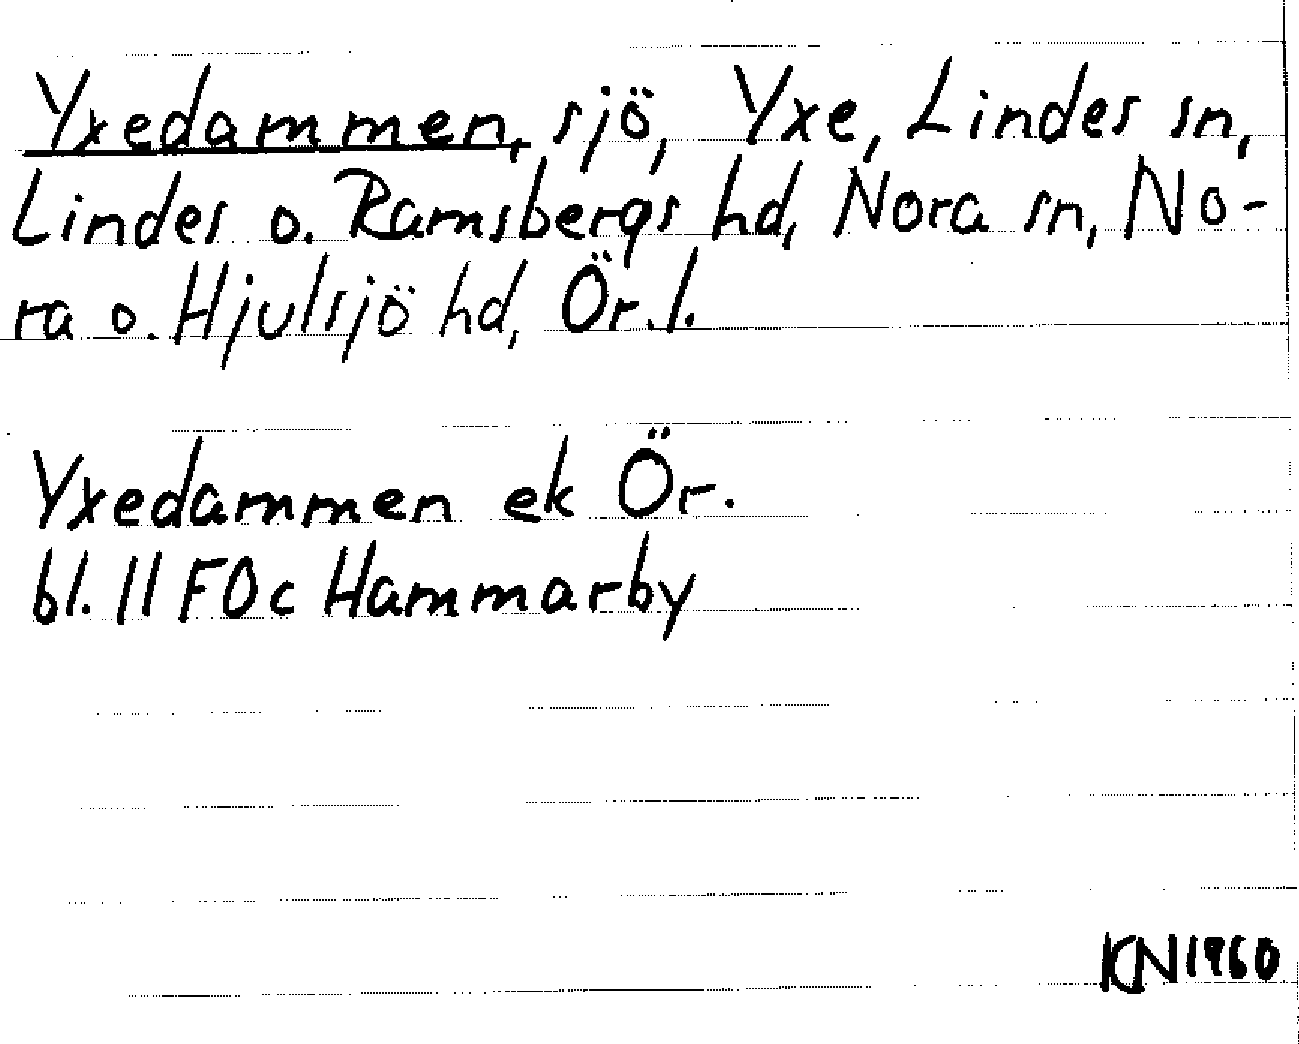 Yxedammen, sjö, Yxe, Lindes sn,
Lindes o. Ramsbergs hd, Nora sn, No-
ra o. Hjulsjö hd, Ör. l.
Yxedammen ek Ör.
bl. 11 F0c Hammarby
KN 1960